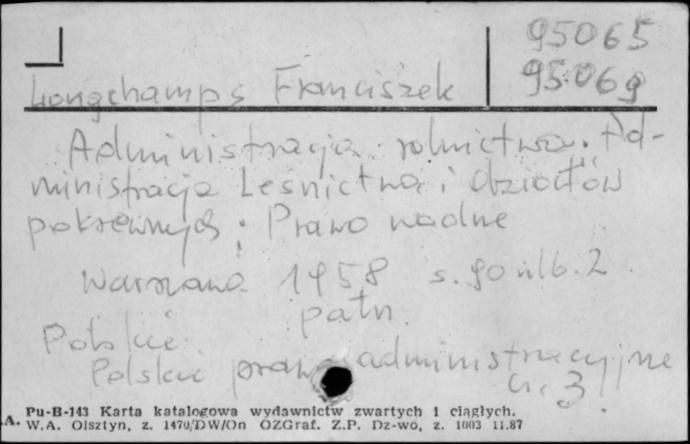 95065
95069
Longchamps Franciszek
Administracja rolnictwa. Ad-
ministracja Leśnictwa i działów
pokrewnych. Prawo wodne
Warszawa 1958 s. 90 nlb. 2
Polskie
Polskie prawo administracyjne
cz. 3
Pu-B-143 Karta katalogowa wydawnictw zwartych i ciągłych.
.A. W.A. Olsztyn, z. 1470/DW/On OZGraf. Z.P. Dz-wo, z. 1003 11.87